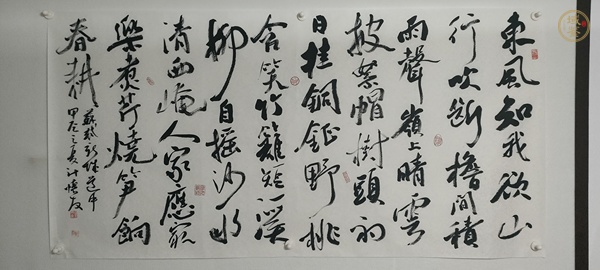 東風知我欲山
行吹斷檐間積
雨聲嶺上晴雲
披絮帽樹頭初
日挂銅鉦野桃
含笑竹籬短溪
柳自搖沙水
清西崦人家應最
樂煮芹燒笋餉
春耕
蘇軾新城道中
甲辰之夏